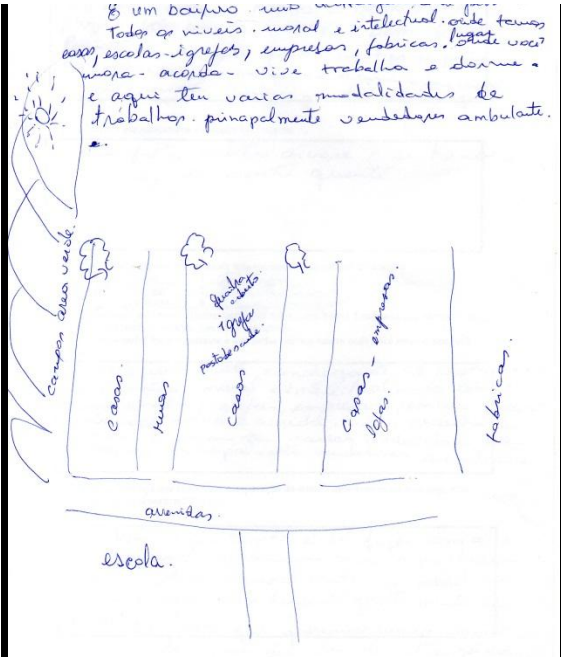 É um bairro
Todos os niveis. moral e intelectual. onde temos
casas, escolas-igrejas, empresas, fabricas. lugar onde você
mora - acorda - vive trabalha e dorme.
e aqui tem varias modalidades de
trabalhos. principalmente vendedores ambulante.
campos area verde.
casas.
ruas
quadra
igreja
posto de saude.
casas
casas - empresas.
lojas.
fabricas.
avenidas.
escola.